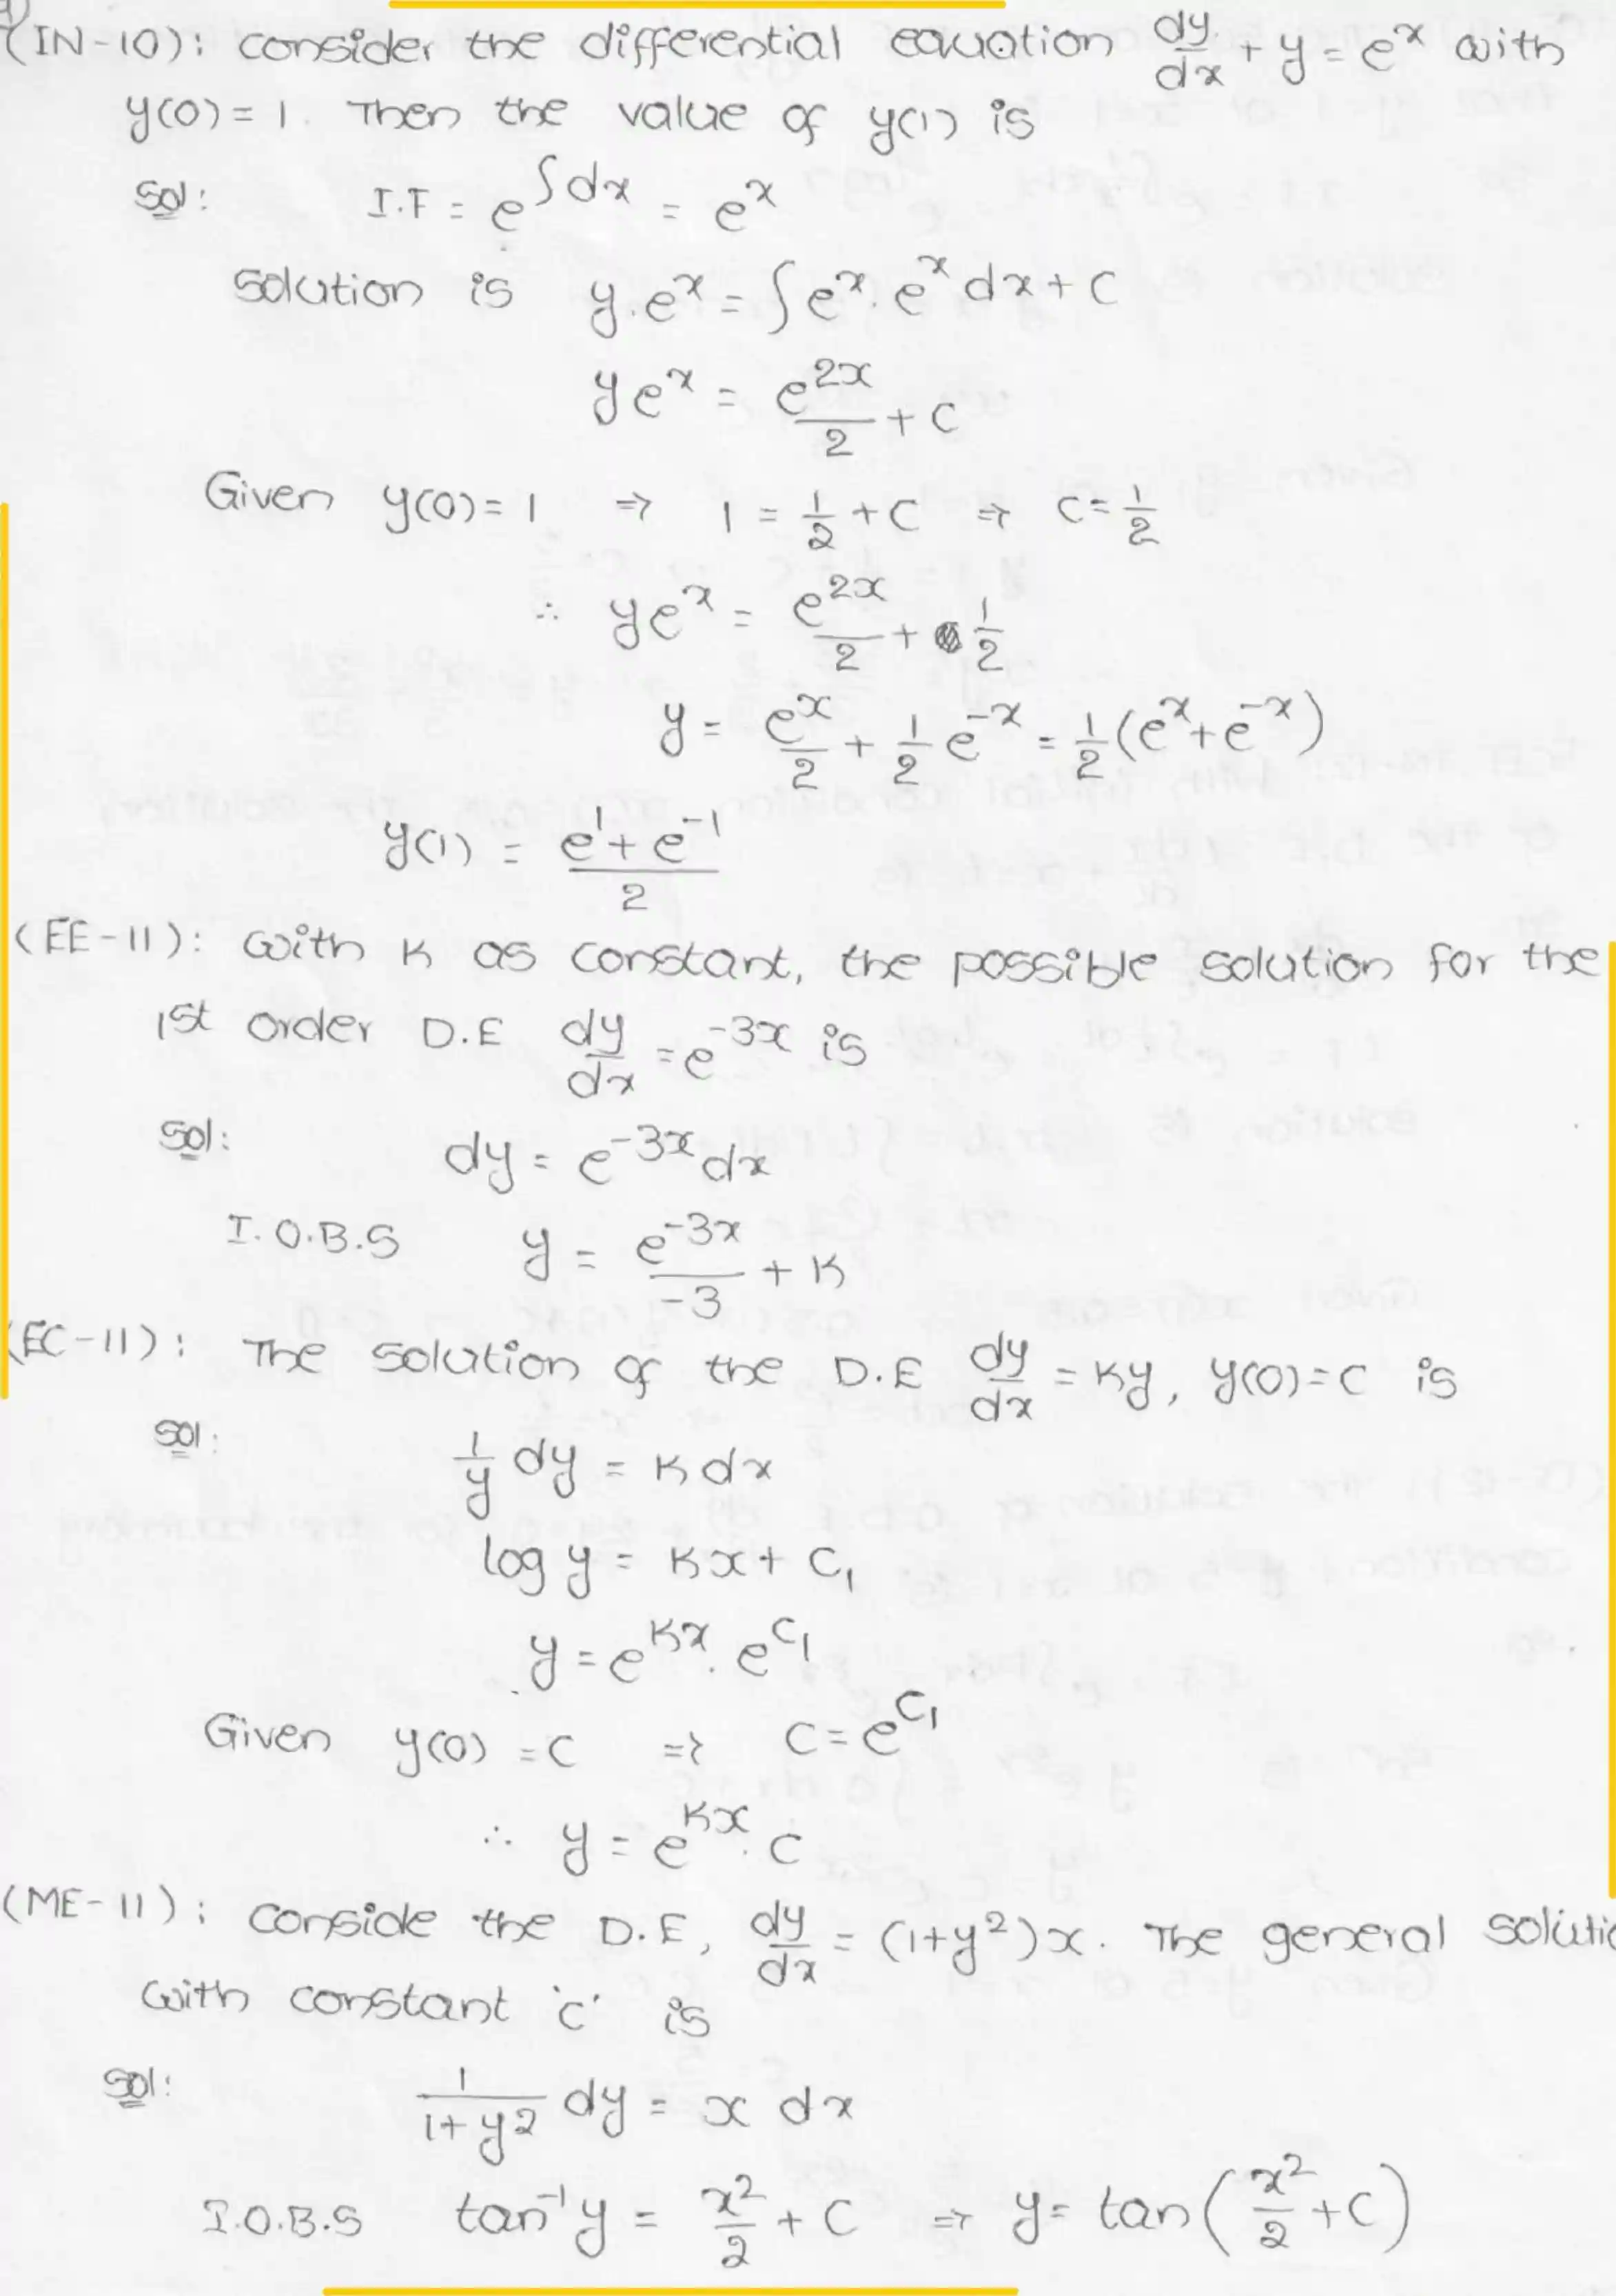 (IN-10): consider the differential equation dy/dx + y = e^x with
y(0) = 1. Then the value of y(1) is
Sol: I.F = e^∫dx = e^x
Solution is y.e^x = ∫e^x.e^x dx + C
ye^x = e^2x/2 + C
Given y(0) = 1 ⇒ 1 = 1/2 + C ⇒ C = 1/2
∴ ye^x = e^2x/2 + 1/2
y = e^x/2 + 1/2 e^-x = 1/2 (e^x + e^-x)
y(1) = (e^1 + e^-1)/2
(EE-11): with K as constant, the possible solution for the
1st order D.E dy/dx = e^-3x is
Sol: dy = e^-3x dx
I.O.B.S y = e^-3x/-3 + K
(EC-11): The solution of the D.E dy/dx = Ky, y(0) = C is
Sol: 1/y dy = K dx
log y = Kx + C₁
y = e^Kx . e^C₁
Given y(0) = C ⇒ C = e^C₁
∴ y = e^Kx . C
(ME-11): conside the D.E, dy/dx = (1+y²)x. The general solutio
with constant 'c' is
Sol: 1/(1+y²) dy = x dx
I.O.B.S tan⁻¹y = x²/2 + C ⇒ y = tan(x²/2 + C)